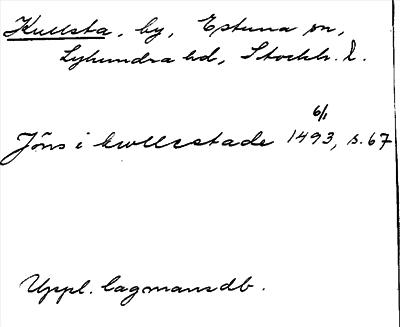 Kullsta, by, Estuna sn,
Lyhundra hd, Stockh. l.
6/1
Jöns i kwllsstade 1493, s. 67
Uppl. lagmansdb.